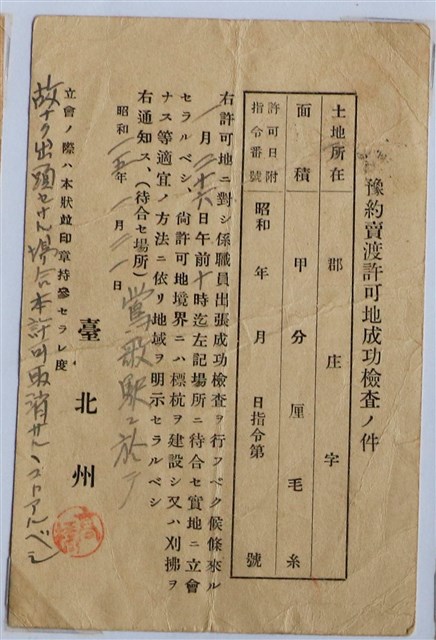 豫約賣渡許可地成功檢查ノ件
土地所在 郡 庄 字
面積 甲 分 厘 毛 糸
許可日附 指令番號 昭和 年 月 日指令第 號
右許可地ニ對シ係職員出張成功檢查ヲ行フベク候條來ル
一月二十六日午前十時迄左記場所ニ待合セ實地ニ立會
セラルベシ、尙許可地境界ニハ標杭ヲ建設シ又ハ刈拂ヲ
ナス等適宜ノ方法ニ依リ地域ヲ明示セラルベシ
右通知ス、(待合セ場所) 鶯歌駅ニ於テ
昭和一五年一月二一日
臺北州
立會ノ際ハ本狀竝印章持參セラレ度
故ナク出頭セザル場合本許可取消サルヽコトアルベシ